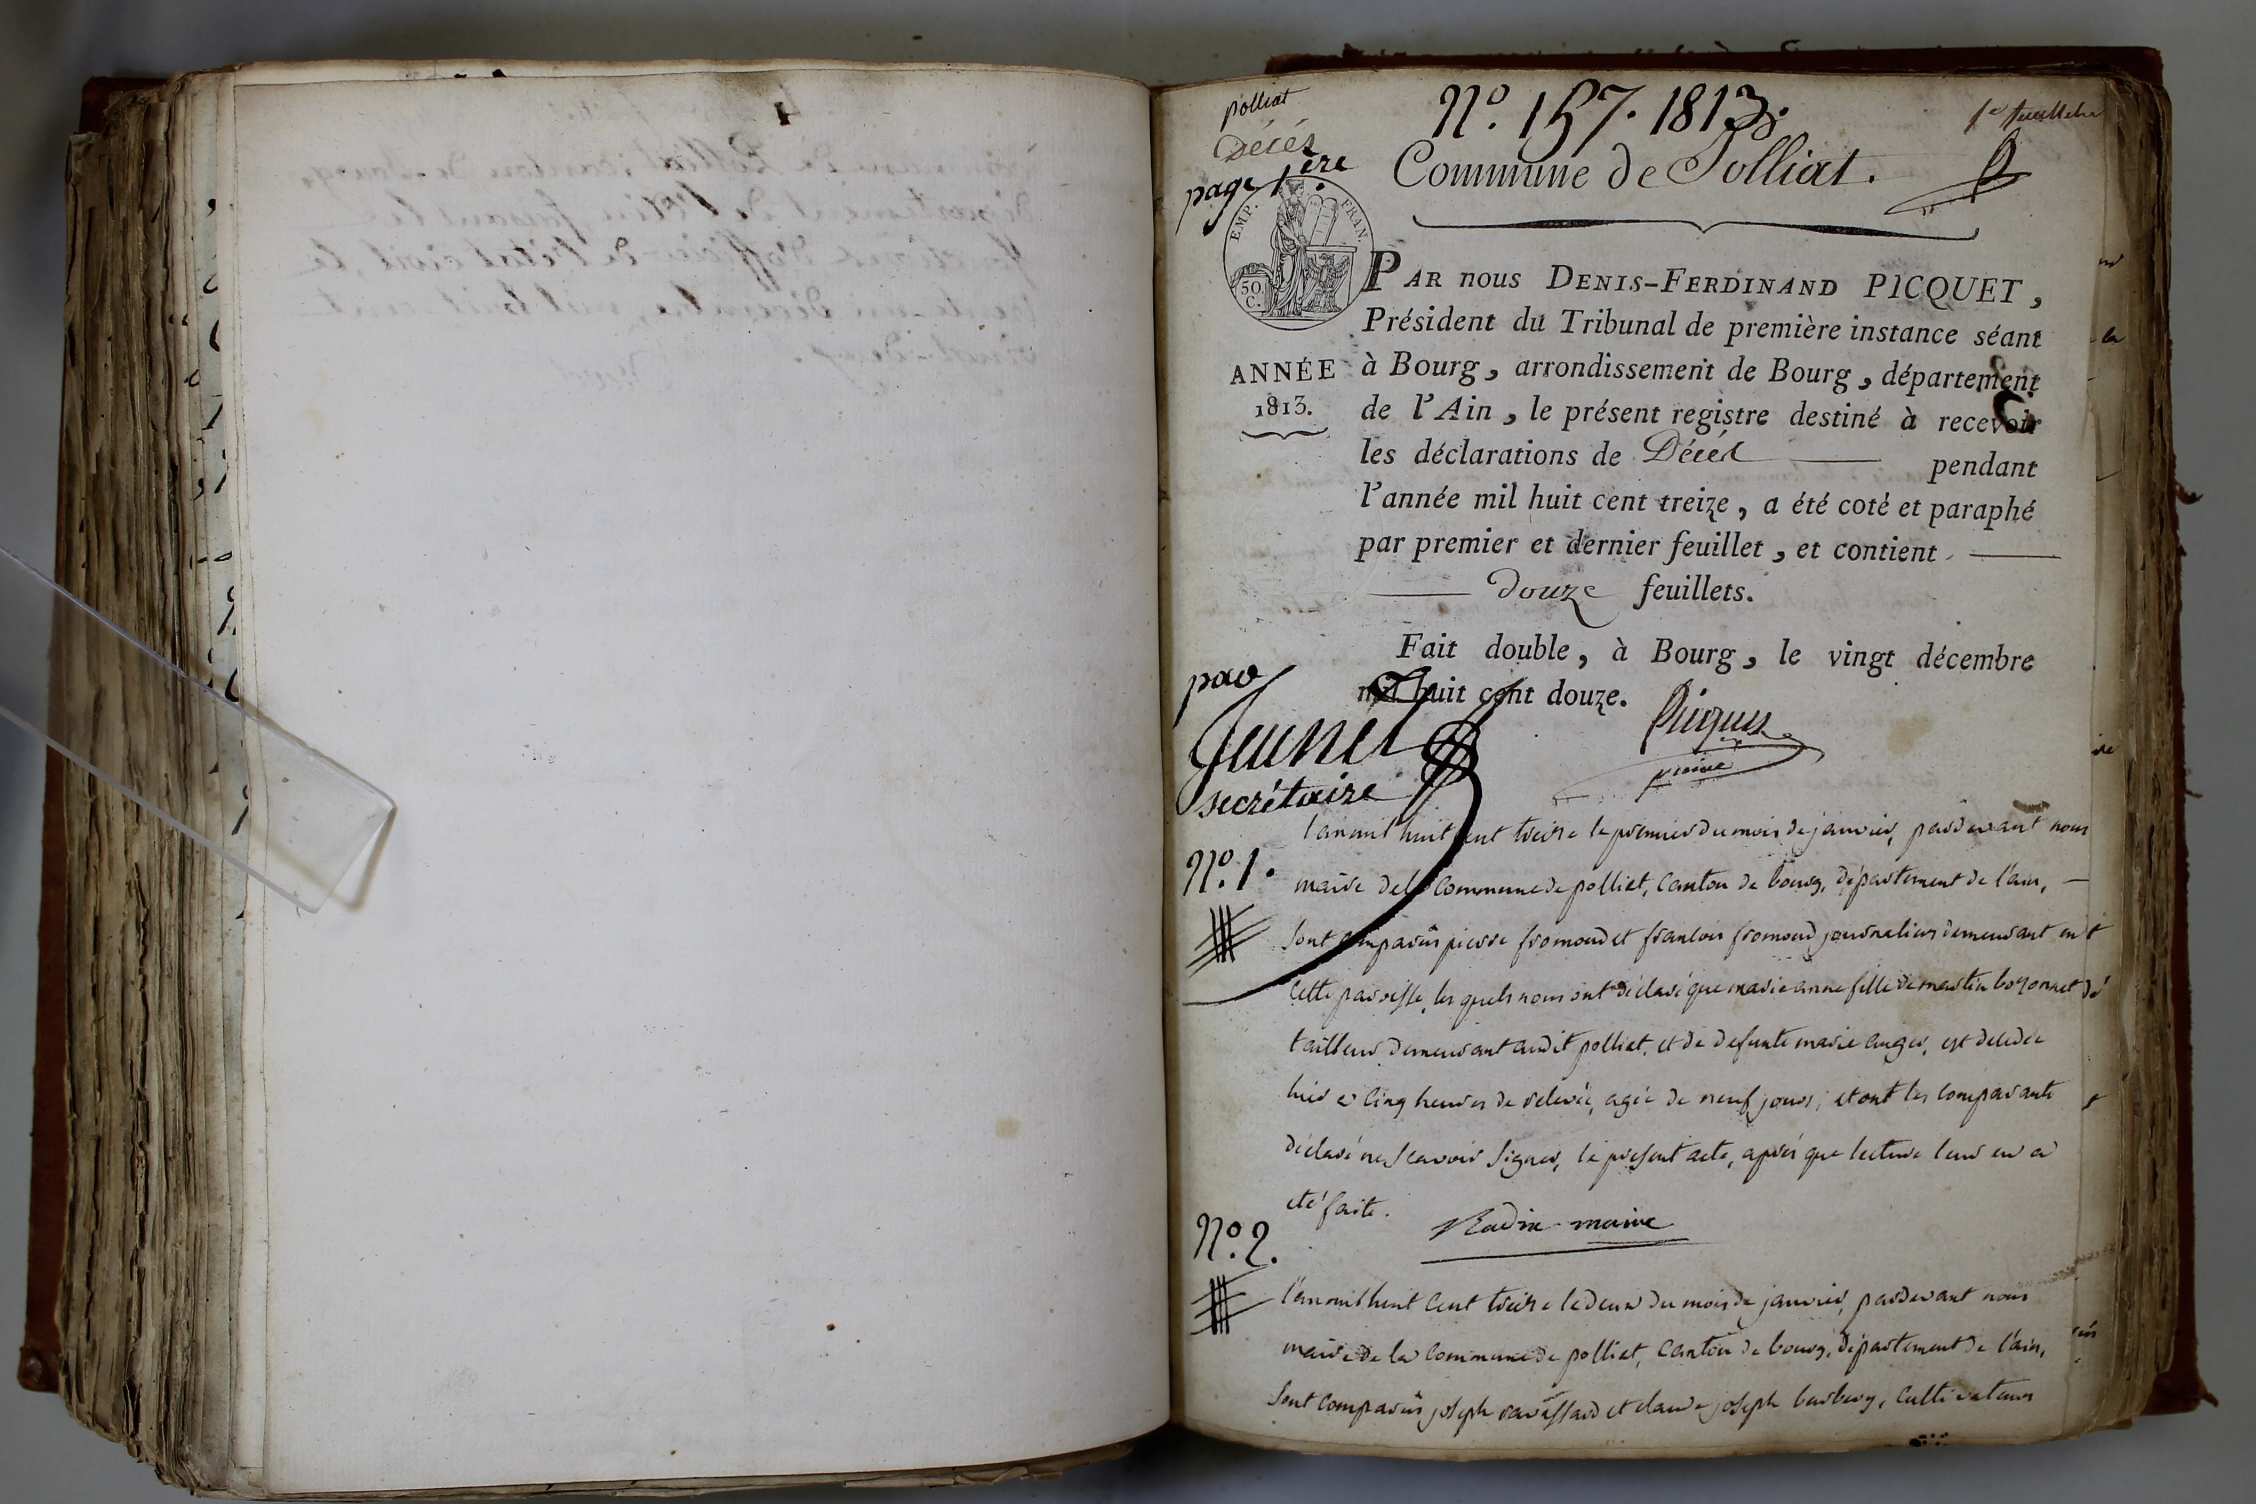 polliat
Décés
page 1ère
N.º 157. 1813.
1er feuillet
Commune de Polliat.
EMP. FRAN.
50.
C.
ANNÉE
1813.
PAR nous DENIS-FERDINAND PICQUET,
Président du Tribunal de première instance séant
à Bourg, arrondissement de Bourg, département
de l'Ain, le présent registre destiné à recevoir
les déclarations de Décés pendant
l'année mil huit cent treize, a été coté et paraphé
par premier et dernier feuillet, et contient
douze feuillets.
Fait double, à Bourg, le vingt décembre
mil huit cent douze.
Picquet
par
Jeunet
secrétaire
N.º 1.
l'an mil huit cent treize le premier du mois de janvier, pardevant nous
maire de la Commune de polliat, Canton de bourg, département de l'ain,
sont comparûs pierre fromond et francois fromond journaliers demeurant en
cette paroisse, les quels nous ont déclaré que marie anne fille de martin boyonnet
tailleur demeurant audit polliat, et de defunte marie auger, est decedée
hier a cinq heures de relevée, agée de neuf jours, et ont les comparants
déclaré ne scavoir signer, le present acte, aprés que lecture leur en a
eté faite.
maire
N.º 2.
l'an mil huit cent treize le deux du mois de janvier, pardevant nous
maire de la Commune de polliat, Canton de bourg, département de l'ain,
sont comparûs joseph ravassard et claude joseph barbery, cultivateurs